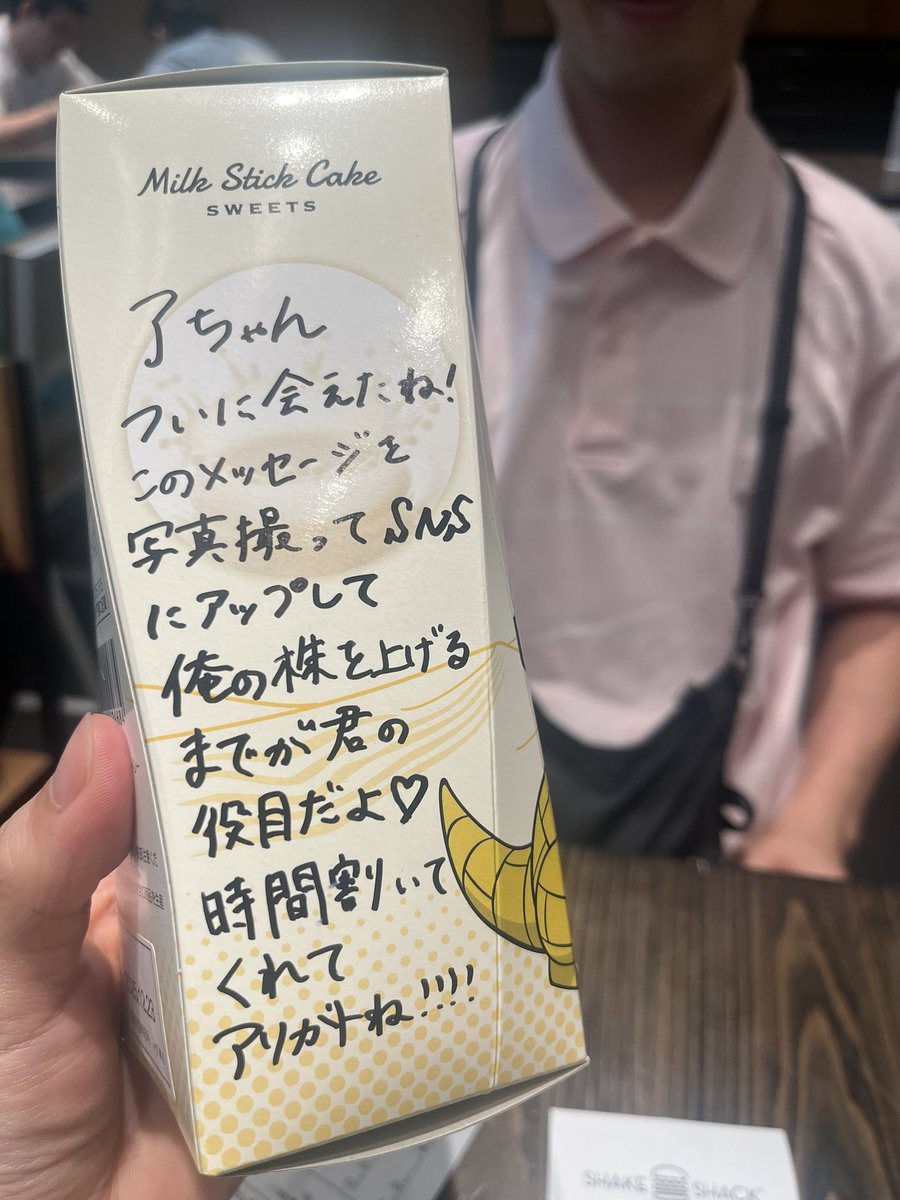 Milk Stick Cake
SWEETS
了ちゃん
ついに会えたね!
このメッセージを
写真撮ってSNS
にアップして
俺の株を上げる
までが君の
役目だよ♡
時間割いて
くれて
アリガトね!!!!
SHAKE SHACK